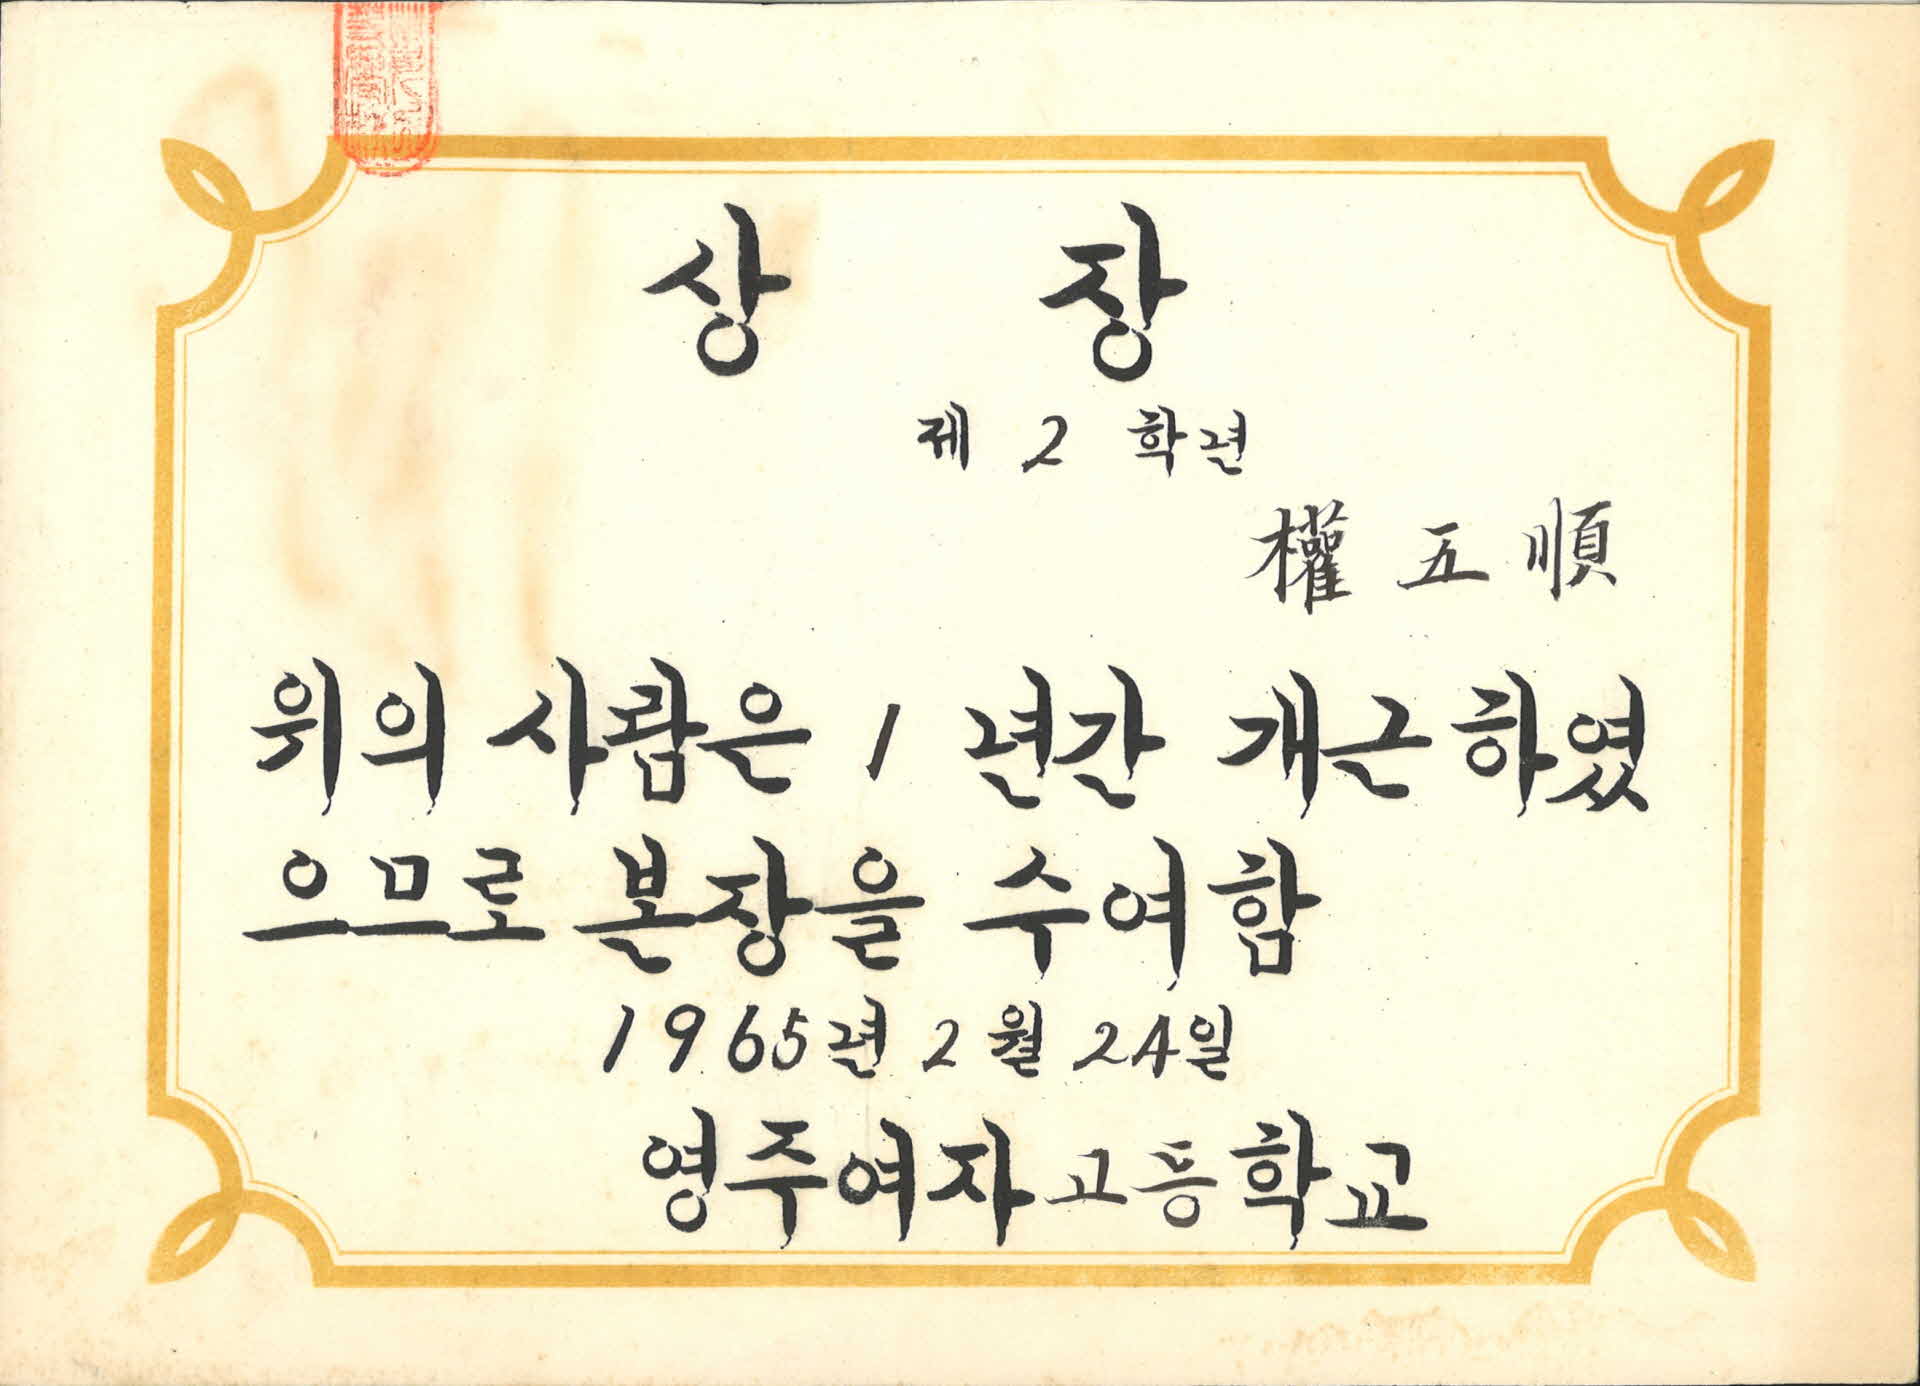 상 장
제 2 학년
權 五 順
위의 사람은 1 년간 개근하였
으므로 본장을 수여함
1965년 2월 24일
영주여자고등학교